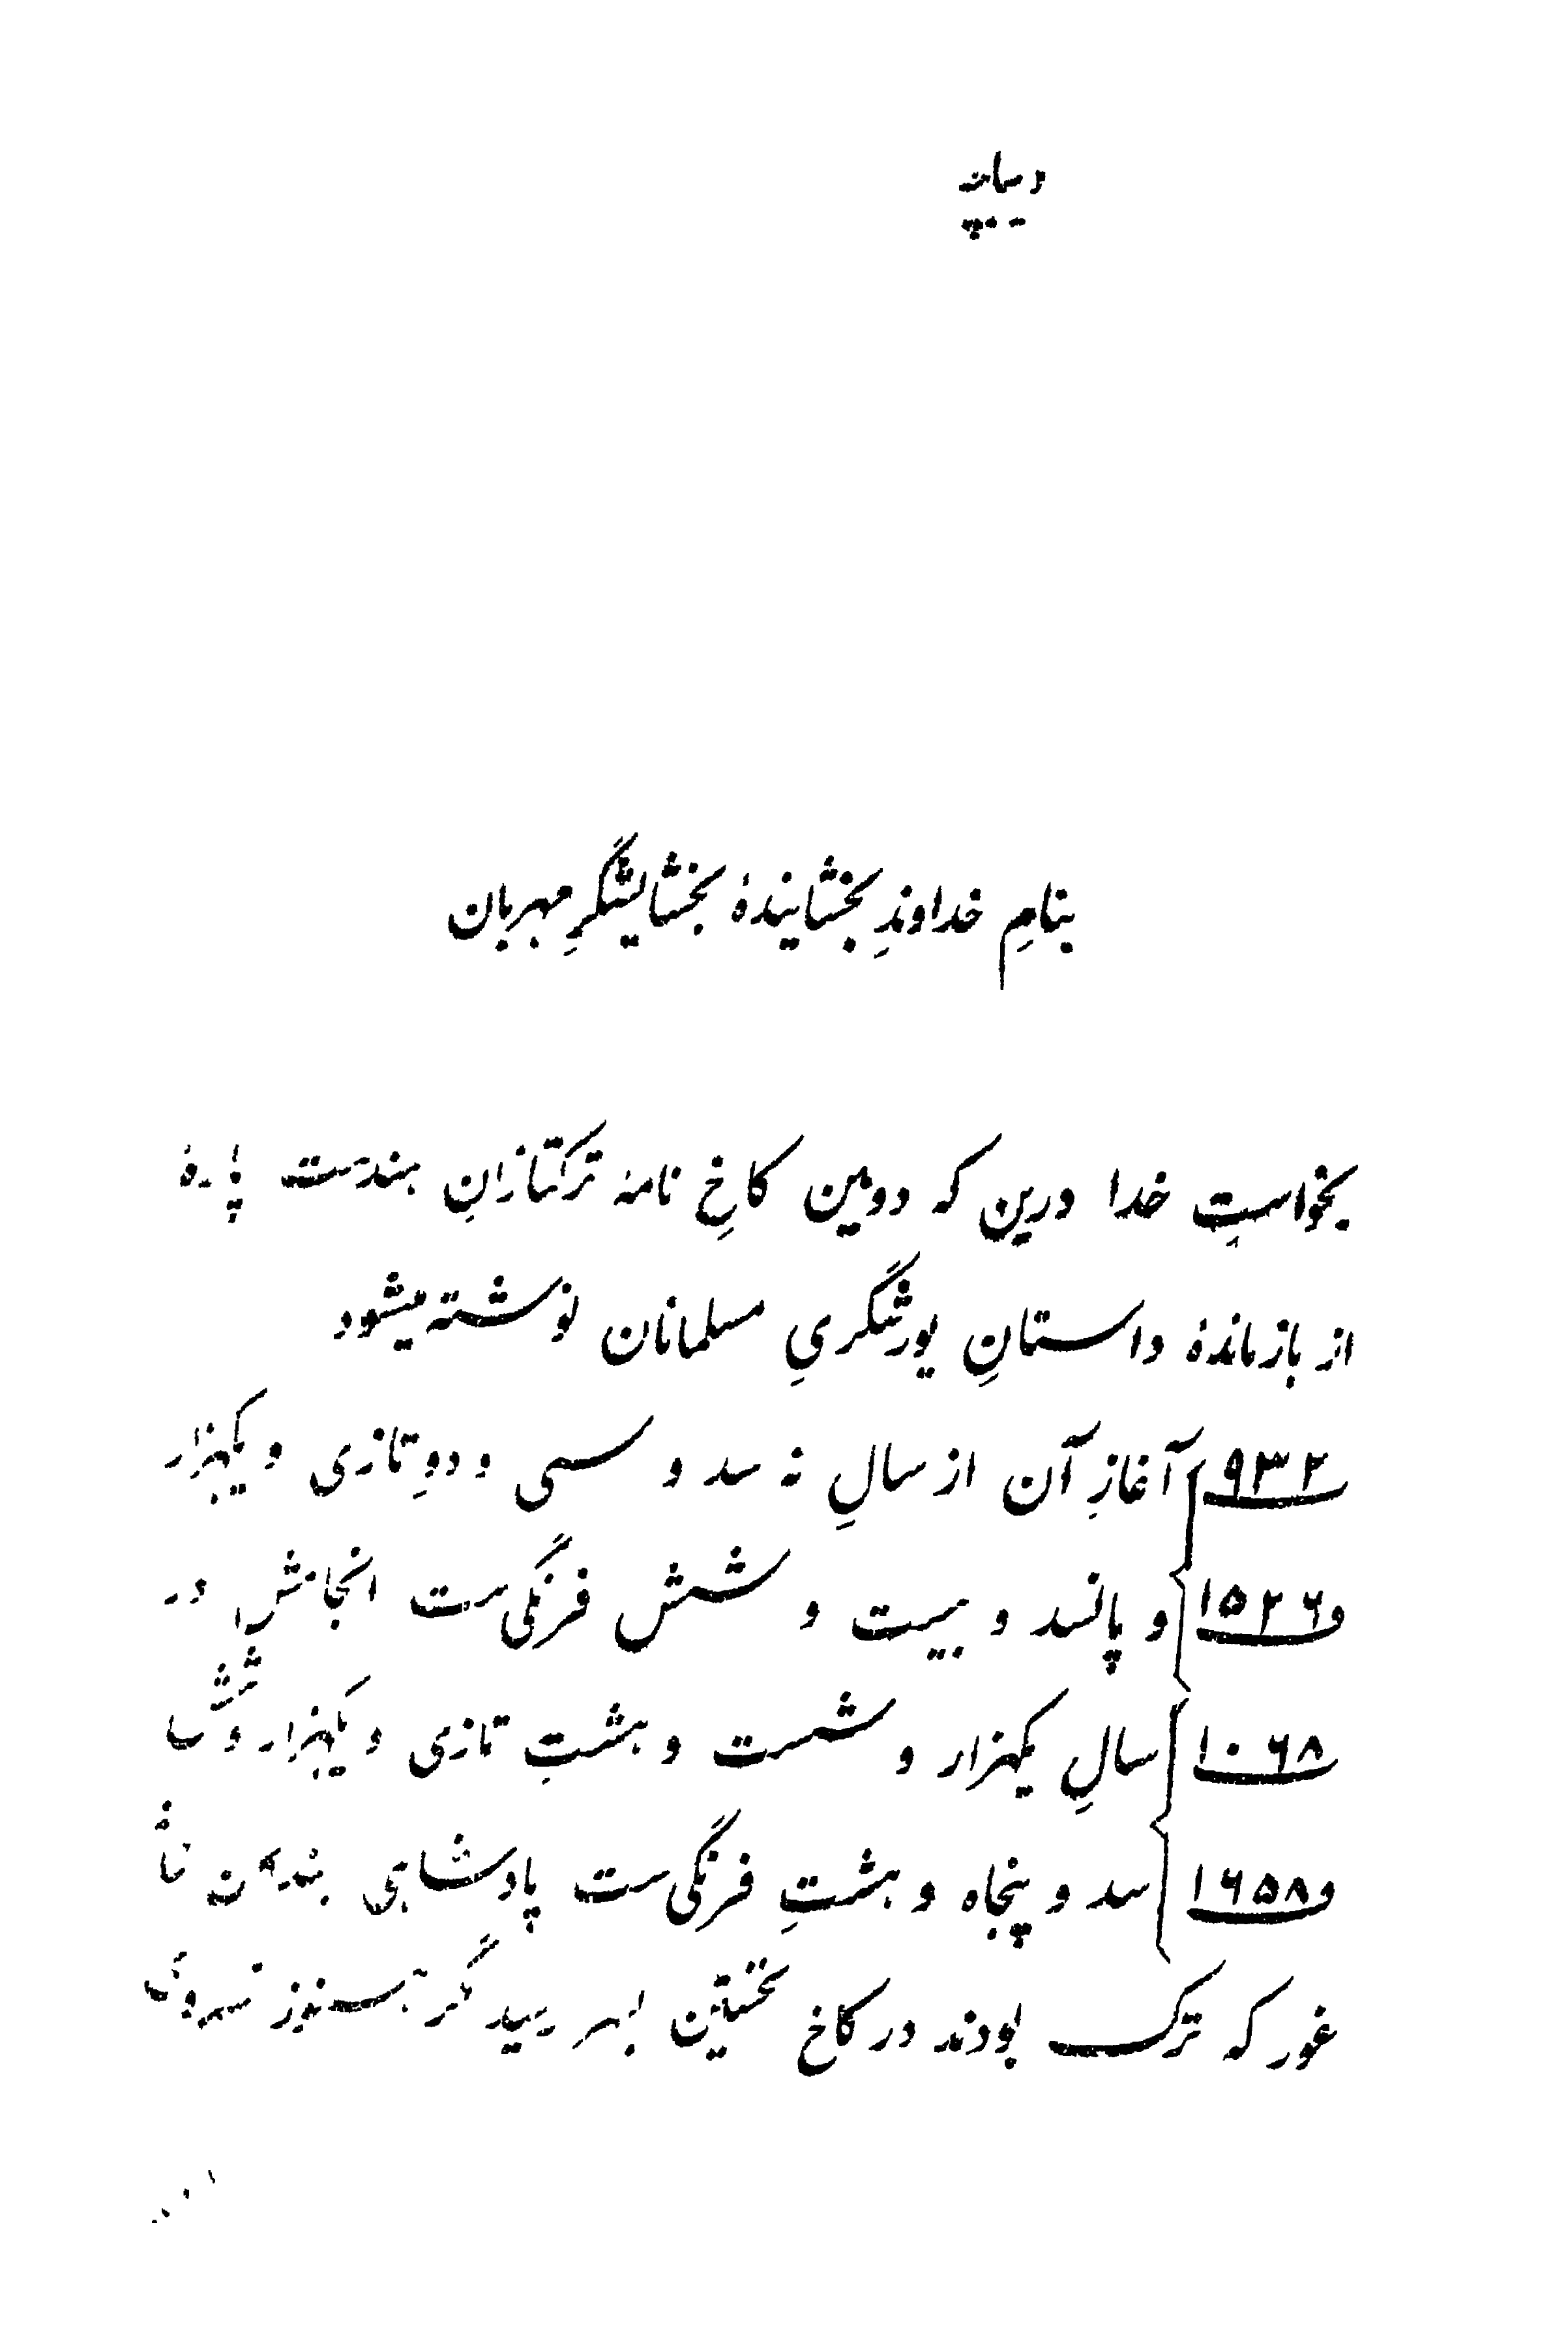 دیباچه
بنامِ خداوندِ بخشایندهٔ بخشایشگرِ مهربان
بخواستِ خدا درین که دومین کاخِ نامهٔ ترکتازانِ هندست پارهٔ
از بازماندهٔ داستانِ یورشگریِ مسلمانان نوشته میشود
۹۳۲ آغازِ آن از سالِ نه سد و سی و دوِ تازی و یکهزار
و۱۵۲۶ و پانسد و بیست و شش فرنگی‌ست انجامش در
۱۰۶۸ سالِ یکهزار و شصت و هشتِ تازی و یکهزار و شش
و۱۶۵۸ سد و پنجاه و هشتِ فرنگی‌ست پادشاهی
غور که ترک بودند در کاخ نخستین بسر رسید مگر هنوز